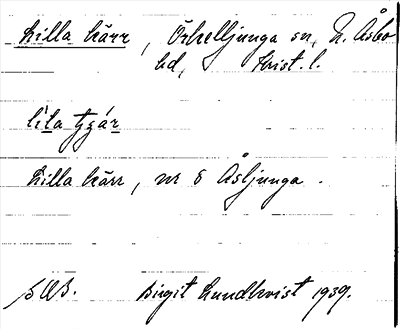 Lilla kärr, Örkelljunga sn, N. Åsbo
hd, Krist. l.
lila tgár
Lilla kärr, nr 8 Åsljunga.
Birgit Lundkvist 1939.